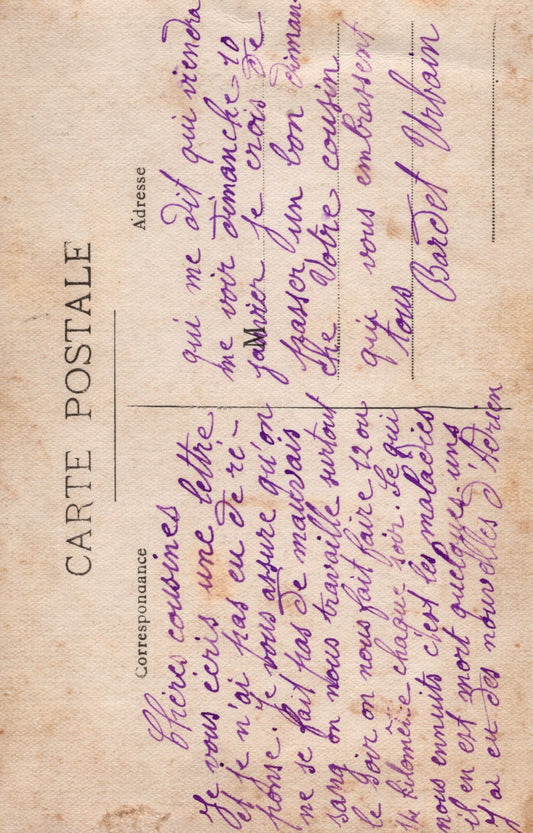 CARTE POSTALE
Correspondance
Adresse
Chères cousines
Je vous écris une lettre
et je n'ai pas eu de ré-
ponse. Je vous assure qu'on
ne se fait pas de mauvais
sang on nous travaille surtout
le soir on nous fait faire 12 ou
14 kilomètre chaque soir. Se qui
nous ennuits c'est les maladies
il en est mort quelques uns
J'ai eu des nouvelles d'Adrien
qui me dit qui viendra
me voir dimanche 10
janvier je crois de
M
passer un bon diman-
che Votre cousin
qui vous embrassent
tous
Bardet Urbain